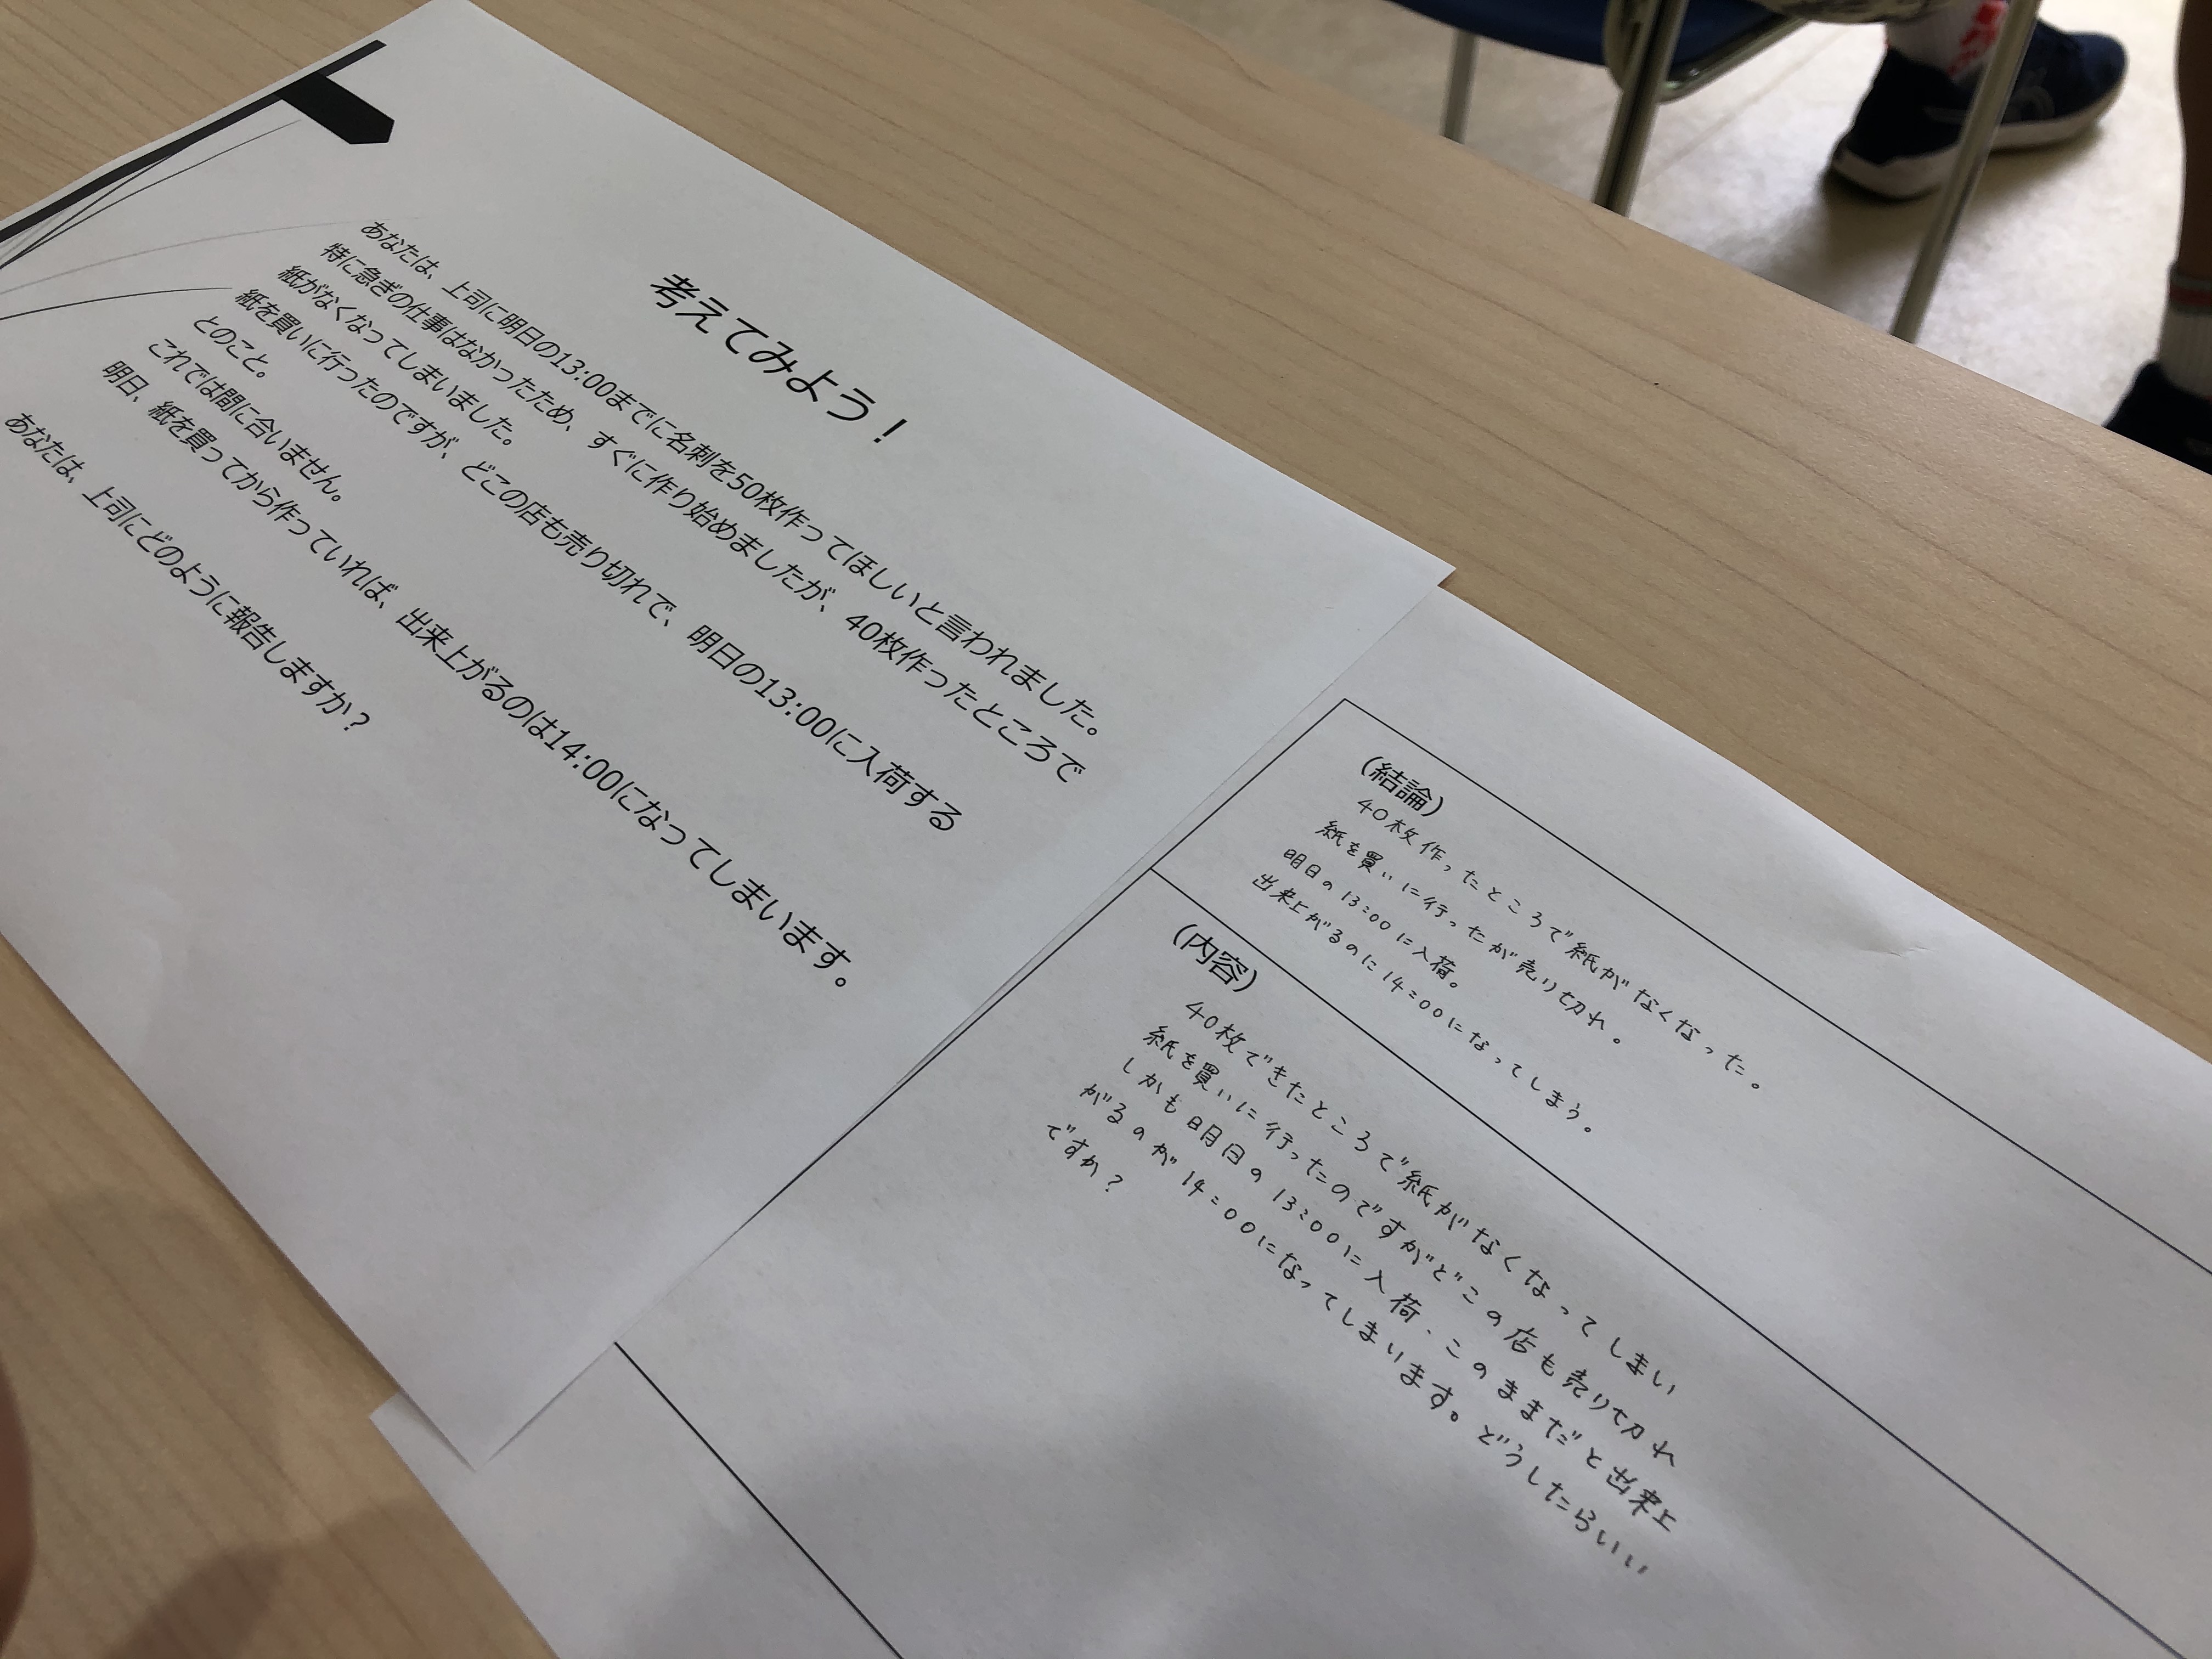 考えてみよう！
あなたは、上司に明日の13:00までに名刺を50枚作ってほしいと言われました。
特に急ぎの仕事はなかったため、すぐに作り始めましたが、40枚作ったところで
紙がなくなってしまいました。
紙を買いに行ったのですが、どこの店も売り切れで、明日の13:00に入荷する
とのこと。
これでは間に合いません。
明日、紙を買ってから作っていれば、出来上がるのは14:00になってしまいます。
あなたは、上司にどのように報告しますか？
(結論)
40枚作ったところで紙がなくなった。
紙を買いに行ったが売り切れ。
明日の13:00に入荷。
出来上がるのに14:00になってしまう。
(内容)
40枚できたところで紙がなくなってしまい
紙を買いに行ったのですがどこの店も売り切れ
しかも明日の13:00に入荷、このままだと出来上
がるのが14:00になってしまいます。どうしたらいい
ですか？